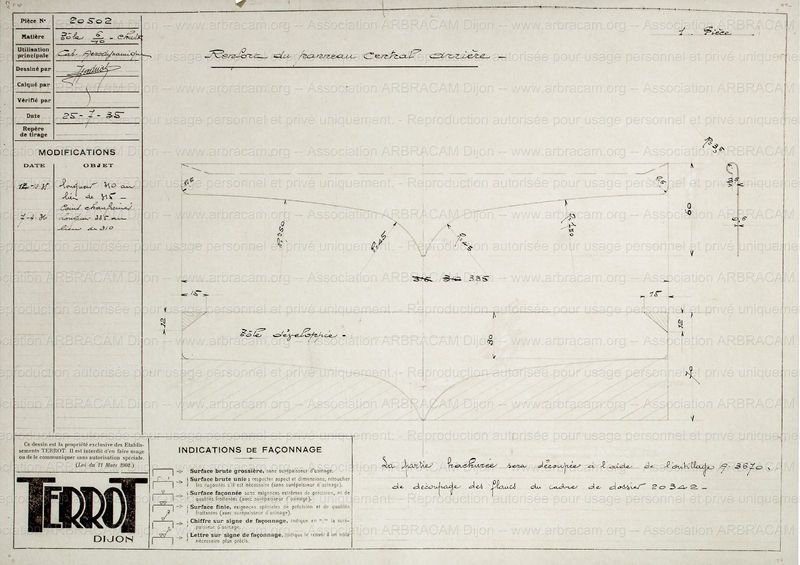 Pièce N° 20502
Matière Tôle 6/10 - Chute
Utilisation principale Cab. Aérodynamique
Dessiné par
Calqué par
Vérifié par
Date 25-7-35
Repère de tirage
MODIFICATIONS
DATE OBJET
longueur 310 au
lieu de 315 -
7-2-36 Longueur 335 au
lieu de 310
Renfort du panneau Central arrière -
1 Pièce
R.35
R.5
R.5
60
R.45
335
15
15
12
12
30
Tôle développée -
La partie hachurée sera découpée à l'aide de l'outillage A.3670.
de découpage des flancs du cadre de dossier 20342 -
Ce dessin est la propriété exclusive des Etablis-
sements TERROT. Il est interdit d'en faire usage
ou de le communiquer sans autorisation spéciale.
(Loi du 11 Mars 1902.)
TERROT
DIJON
INDICATIONS DE FAÇONNAGE
Surface brute grossière, sans surépaisseur d'usinage.
Surface brute unie : respecter aspect et dimensions, retoucher
les rugosités s'il est nécessaire (sans surépaisseur d'usinage).
Surface façonnée sans exigences extrêmes de précision, et de
qualités frottantes (avec surépaisseur d'usinage).
Surface finie, exigences spéciales de précision et de qualités
frottantes (avec surépaisseur d'usinage).
Chiffre sur signe de façonnage, indique en "/" la suré-
paisseur d'usinage.
Lettre sur signe de façonnage, indique le renvoi à un texte
nécessaire plus précis.
www.arbracam.org -- Association ARBRACAM Dijon
Reproduction autorisée pour usage personnel et privé uniquement.